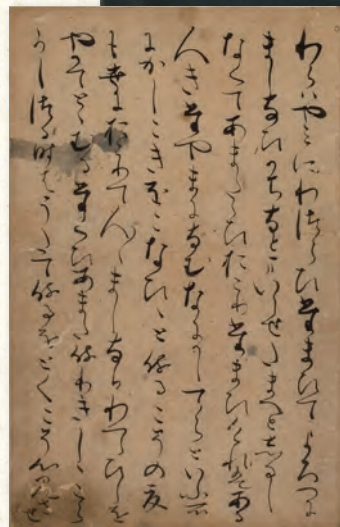 わらはやみにわつらひたまひてよろつに
ましなひかちなとまいらせたまへとしるし
なくてあまたゝひおこりたまひけれはある
人きたやまになむなにかしてらといふ所
にかしこきをこなひ人侍るこその夏
も世におこりて人〻ましなひわつらひしを
やかてとゝむるたくひあまた侍りきしゝこら
かしつる時はうたて侍るをとくこそ心みさせ